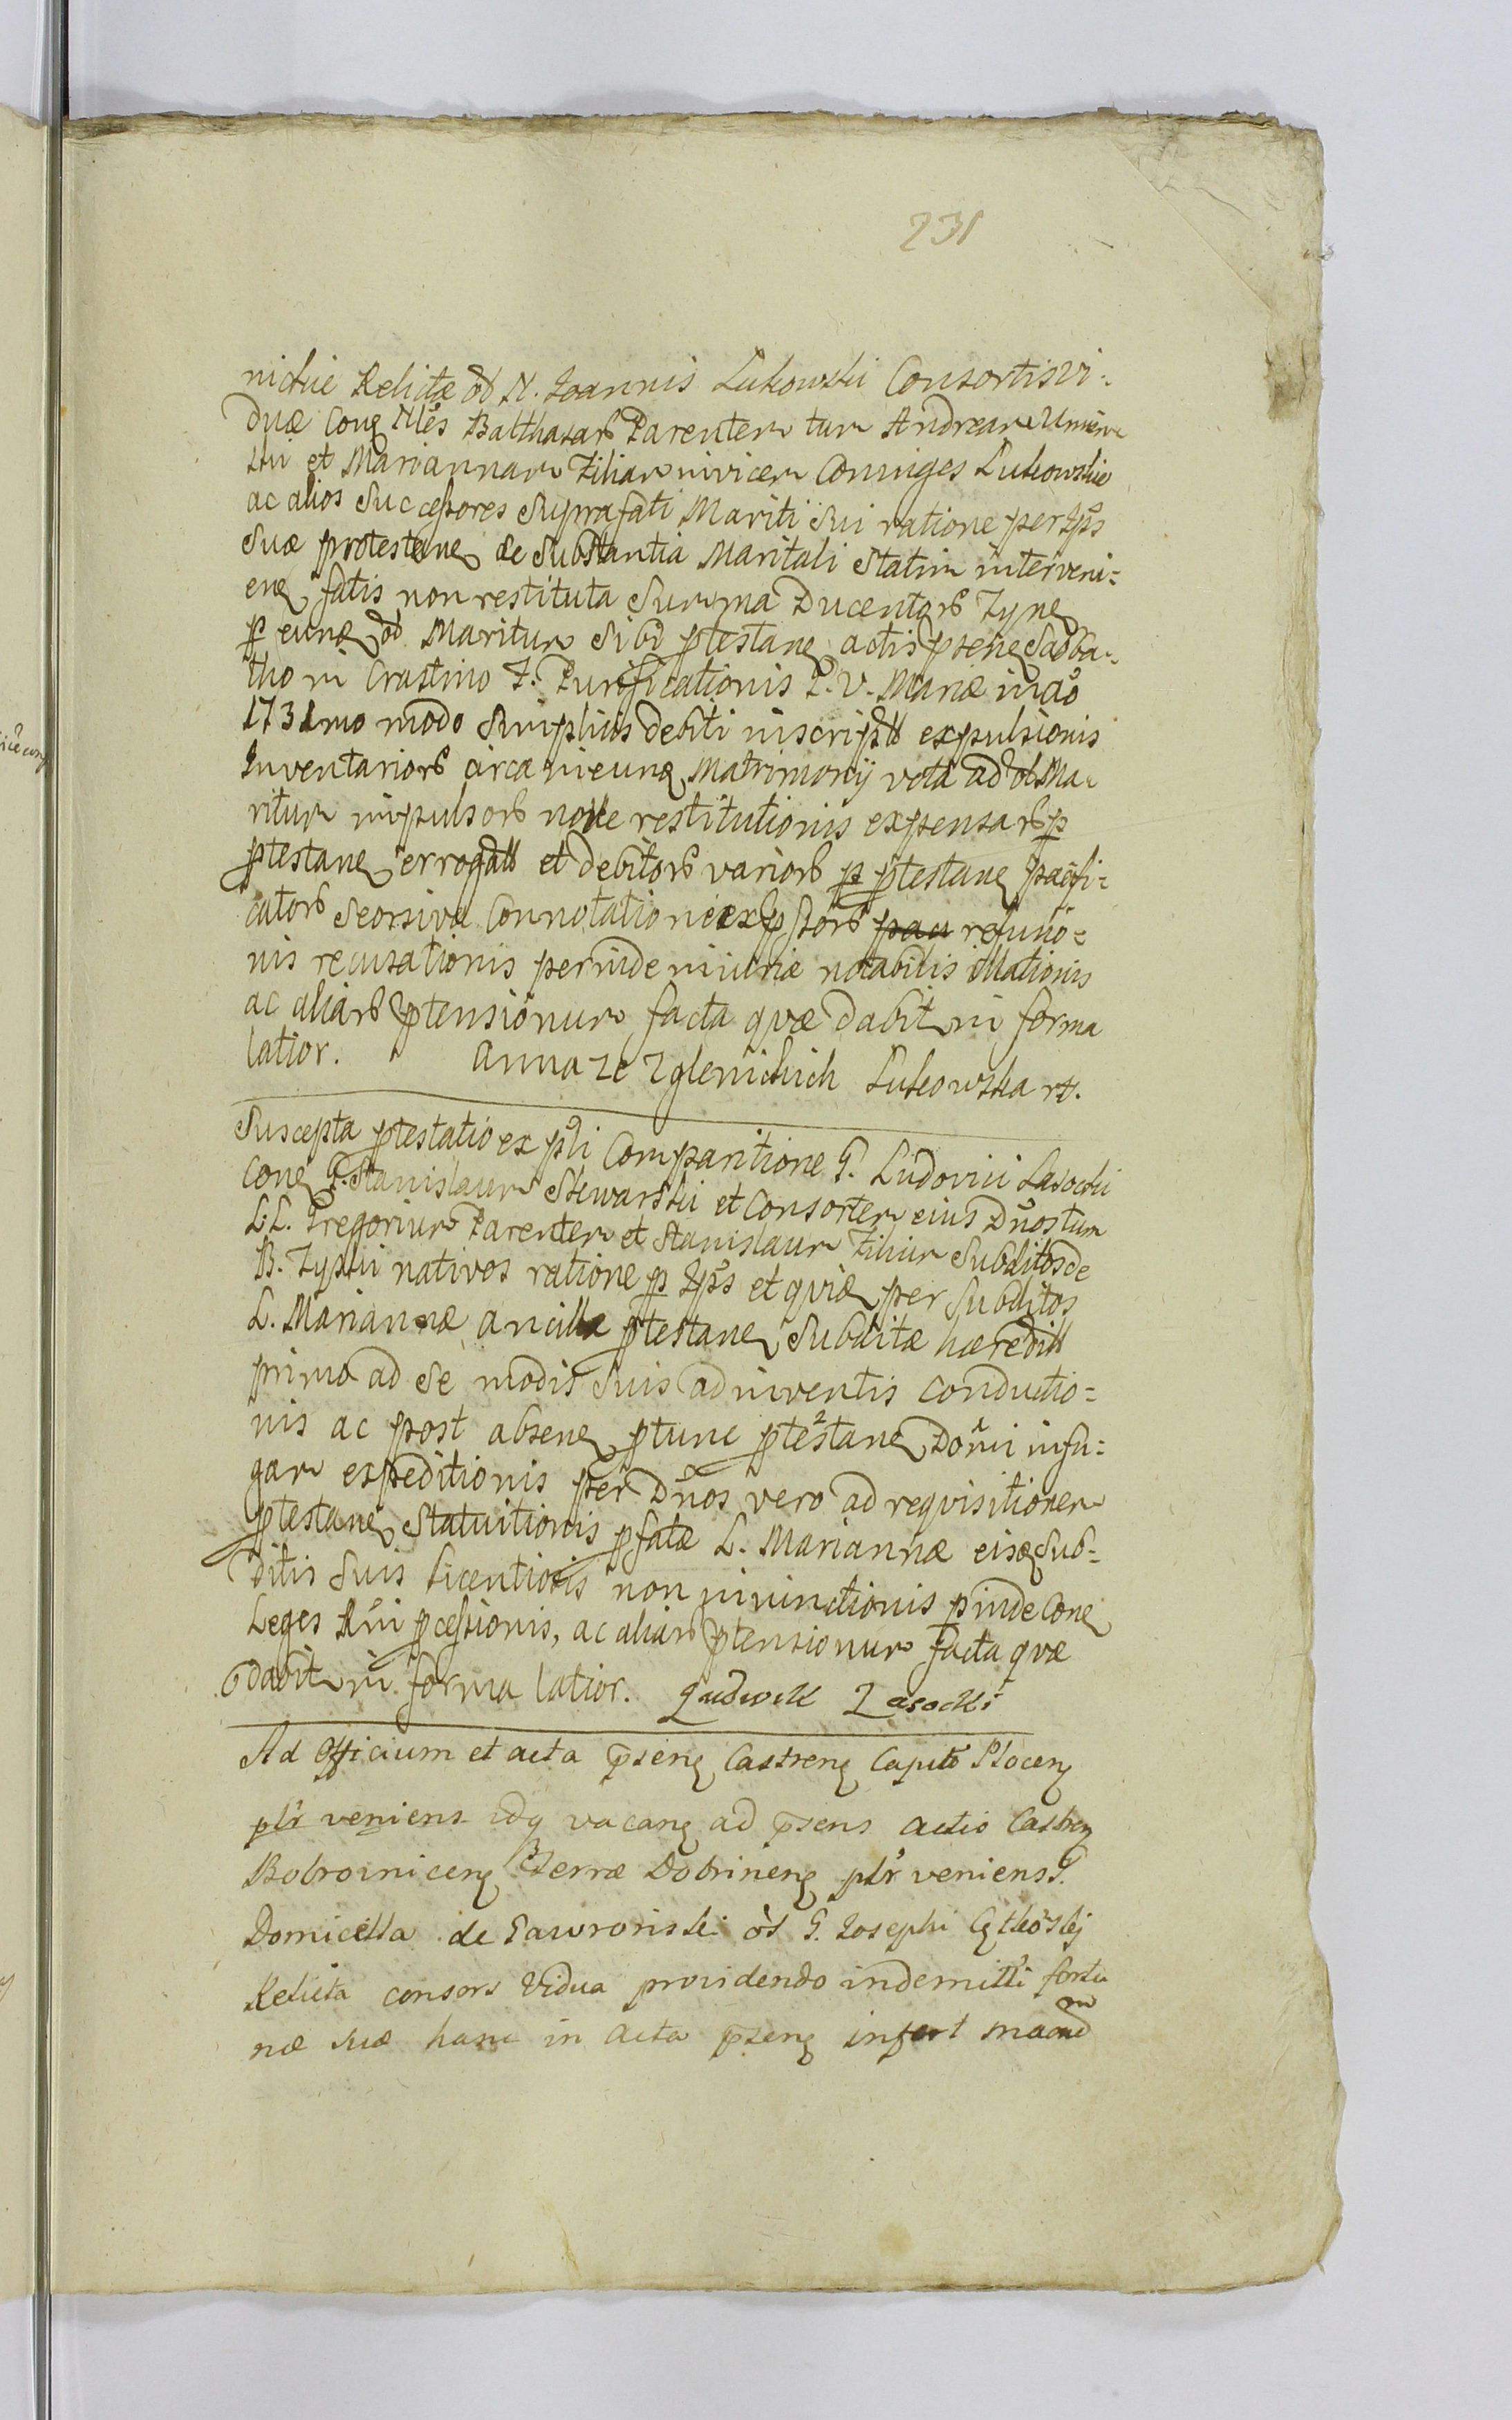 231
nickie Relictæ od N. Joannis Lukowski Consortis vi-
duæ Conq Nles Balthasarē Parentem tum Andream Umiens
ski et Mariannam Filiam invicem Coniuges Lukowskie
ac alios Successores Suprafati Mariti Sui ratione per Ipsos
Suæ protestanq de Substantia Maritali Statim interveni=
enq fatis non restituta Summa Ducentorē Zynq
p eunq od Maritum Sibi ptestanq actis psenq Sabba-
tho in Crastino F. Purificationis B. V. Mariæ in ao
1731mo modo Simplicis debiti inscriptæ expulsionis
Inventariorē circa ineunq Matrimonÿ vota ad od Ma-
ritum impulsorē nolle restitutionis expensarē p
ptestanq errogatt et debitorē variorē p ptestanq pacifi=
catorē Seorsiva Connotatione expssorē refusio=
nis recusationis perinde iniuriæ notabilis illationis
ac aliarē ptensionum facta quæ dabit in forma
latior. Anna ze Zglenickich Lukowska rt.
Suscepta ptestatio ex psli Comparitione G. Ludovici Lasocki
conq G. Stanislaum Skwarski et Consortem eius Dnos tum
L.L. Gregorium Parentem et Stanislaum Filium Subditos de
B. Zyski nativos ratione p Ipsos et quidē per Subditos
L. Mariannæ ancillæ ptestanq Subditæ hæreditt
primo ad Se modis Suis adinventis conductio=
nis ac post absenq ptunc ptestanq Domi in fu=
gam expeditionis per Dnos vero ad requisitionem
ptestanq Statuitionis pfatæ L. Mariannæ eisq Sub=
ditis Suis licentiosis non iniunctionis pinde Conq
Leges Rni pcessionis, ac aliarē ptensionum facta quæ
dabit in forma latior. Ludwik Lasocki
Ad Officium et acta psenq Castrenq Capitē Plocenq
plr veniens idq vacanq ad psens actis Castrenq
Bobrownicenq Terræ Dobrinenq plr veniens G.
Domicella de Gaworonski od G. Josephi
Relicta consors Vidua providendo indemnitti fortu
næ suæ hanc in acta psenq infert mand